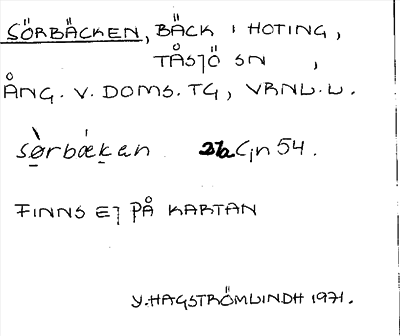 SÖRBÄCKEN, BÄCK I HOTING,
TÅSJÖ SN ,
ÅNG. V. DOMS. TG, VRNL. L.
sø̀rbæ̀ken Cjn 54.
FINNS EJ PÅ KARTAN
Y. HAGSTRÖMLINDH 1971.